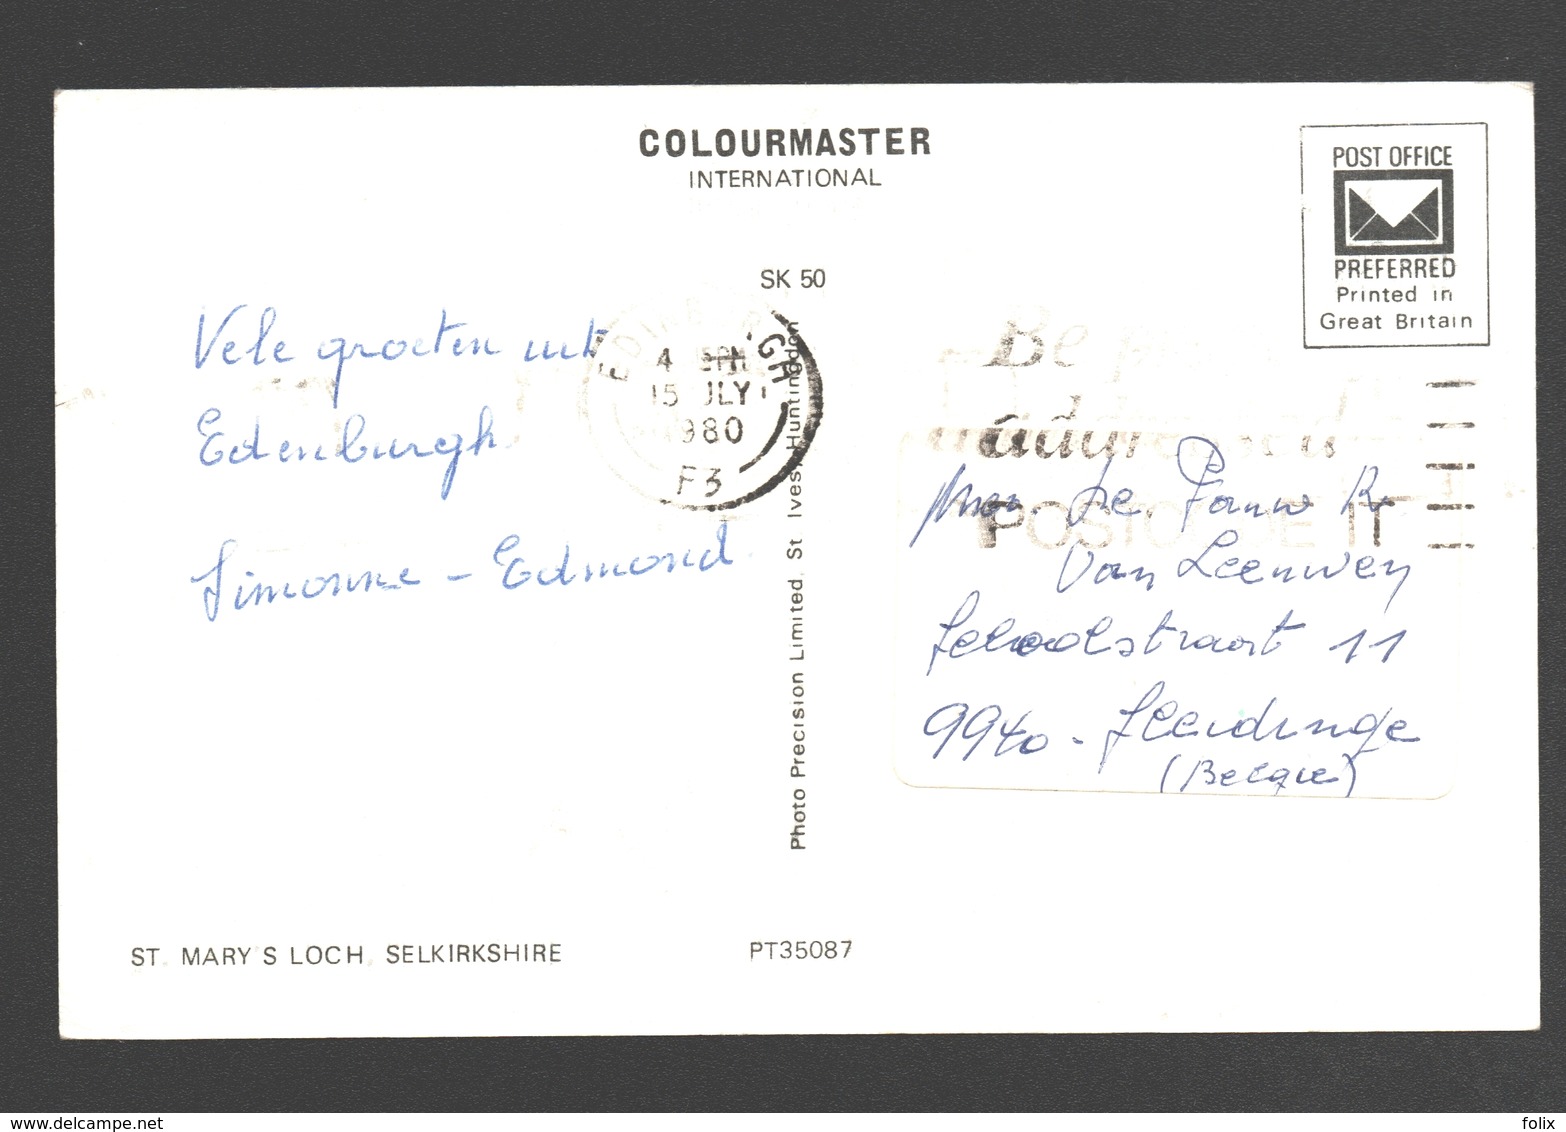 COLOURMASTER
INTERNATIONAL
POST OFFICE
PREFERRED
Printed in
Great Britain
SK 50
Vele groeten uit
Edenburgh.
Simonne - Edmond
EDINBURGH
4 PM
15 JLY
1980
F3
Be
addressed
POSTCODE IT
De Pauw R
Van Leenwen
Schoolstraat 11
9940 - Sleidinge
(Belgie)
Photo Precision Limited, St Ives, Huntingdon
ST. MARY'S LOCH, SELKIRKSHIRE
PT35087
folix